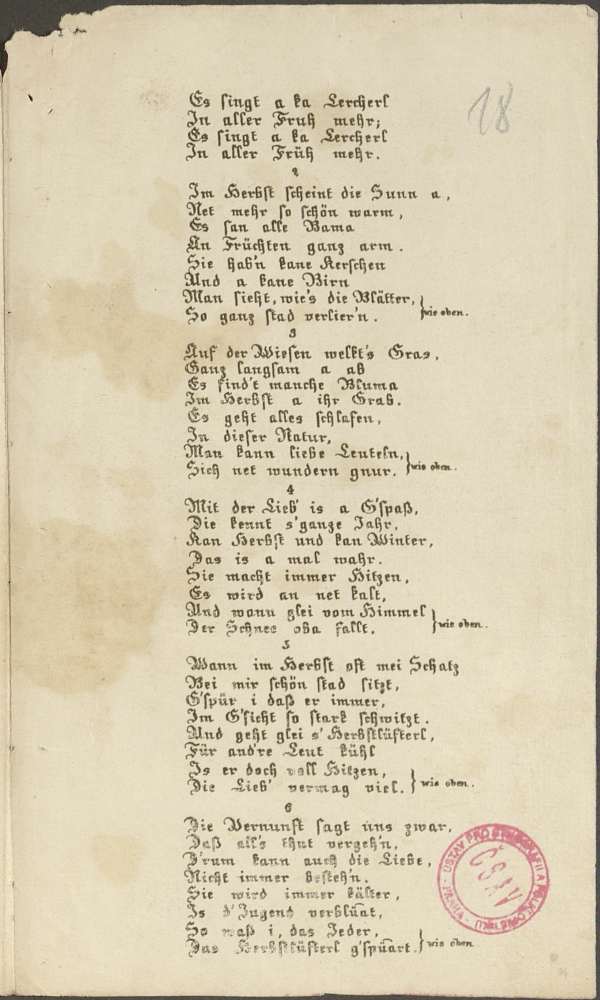 18
Es singt a ka Lercherl
In aller Fruh mehr;
Es singt a ka Lercherl
In aller Früh mehr.
2
Im Herbst scheint die Sunn a,
Net mehr so schön warm,
Es san alle Bama
An Früchten ganz arm.
Sie hab'n kane Kerschen
Und a kane Birn
Man sieht, wie's die Blätter,
So ganz stad verlier'n. } wie oben.
3
Auf der Wiesen welkt's Gras,
Ganz langsam a ab
Es find't manche Bluma
Im Herbst a ihr Grab.
Es geht alles schlafen,
In dieser Natur,
Man kann liebe Leuteln,
Sich net wundern gnur. } wie oben.
4
Mit der Lieb' is a G'spaß,
Die kennt s'ganze Jahr,
Kan Herbst und kan Winter,
Das is a mal wahr.
Sie macht immer Hitzen,
Es wird an net kalt,
Und wann glei vom Himmel
Der Schnee oba fallt. } wie oben.
5
Wann im Herbst oft mei Schatz
Bei mir schön stad sitzt,
G'spür i daß er immer,
Im G'sicht so stark schwitzt.
Und geht glei s'Herbstlüfterl,
Für and're Leut kühl
Is er doch voll Hitzen,
Die Lieb' vermag viel. } wie oben.
6
Die Vernunft sagt uns zwar,
Daß all's thut vergeh'n,
D'rum kann auch die Liebe,
Nicht immer besteh'n.
Sie wird immer kälter,
Is d'Jugend verblüat,
So waß i, das Jeder,
Das Herbstlüfterl g'spüart. } wie oben
ČSAV